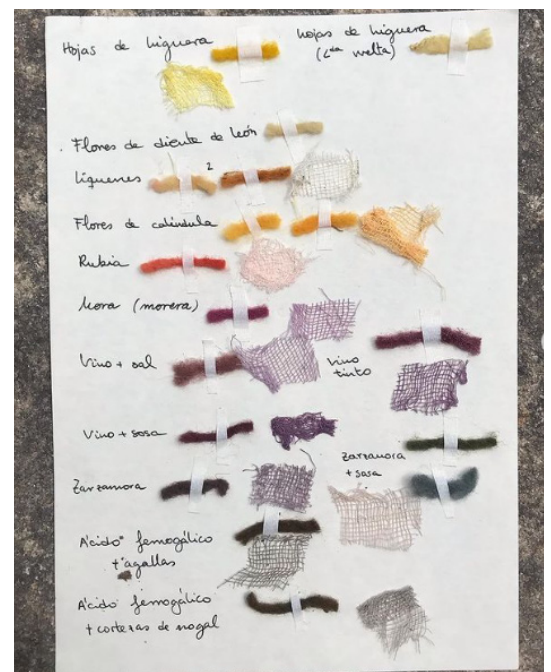 Hojas de higuera
hojas de higuera
(2da vuelta)
Flores de diente de león
Líquenes
2
Flores de caléndula
Rubia
Mora (morera)
Vino + sal
Vino
tinto
Vino + sosa
Zarzamora
+ sosa
Zarzamora
Ácido femogálico
+ agallas
Ácido femogálico
+ cortezas de nogal